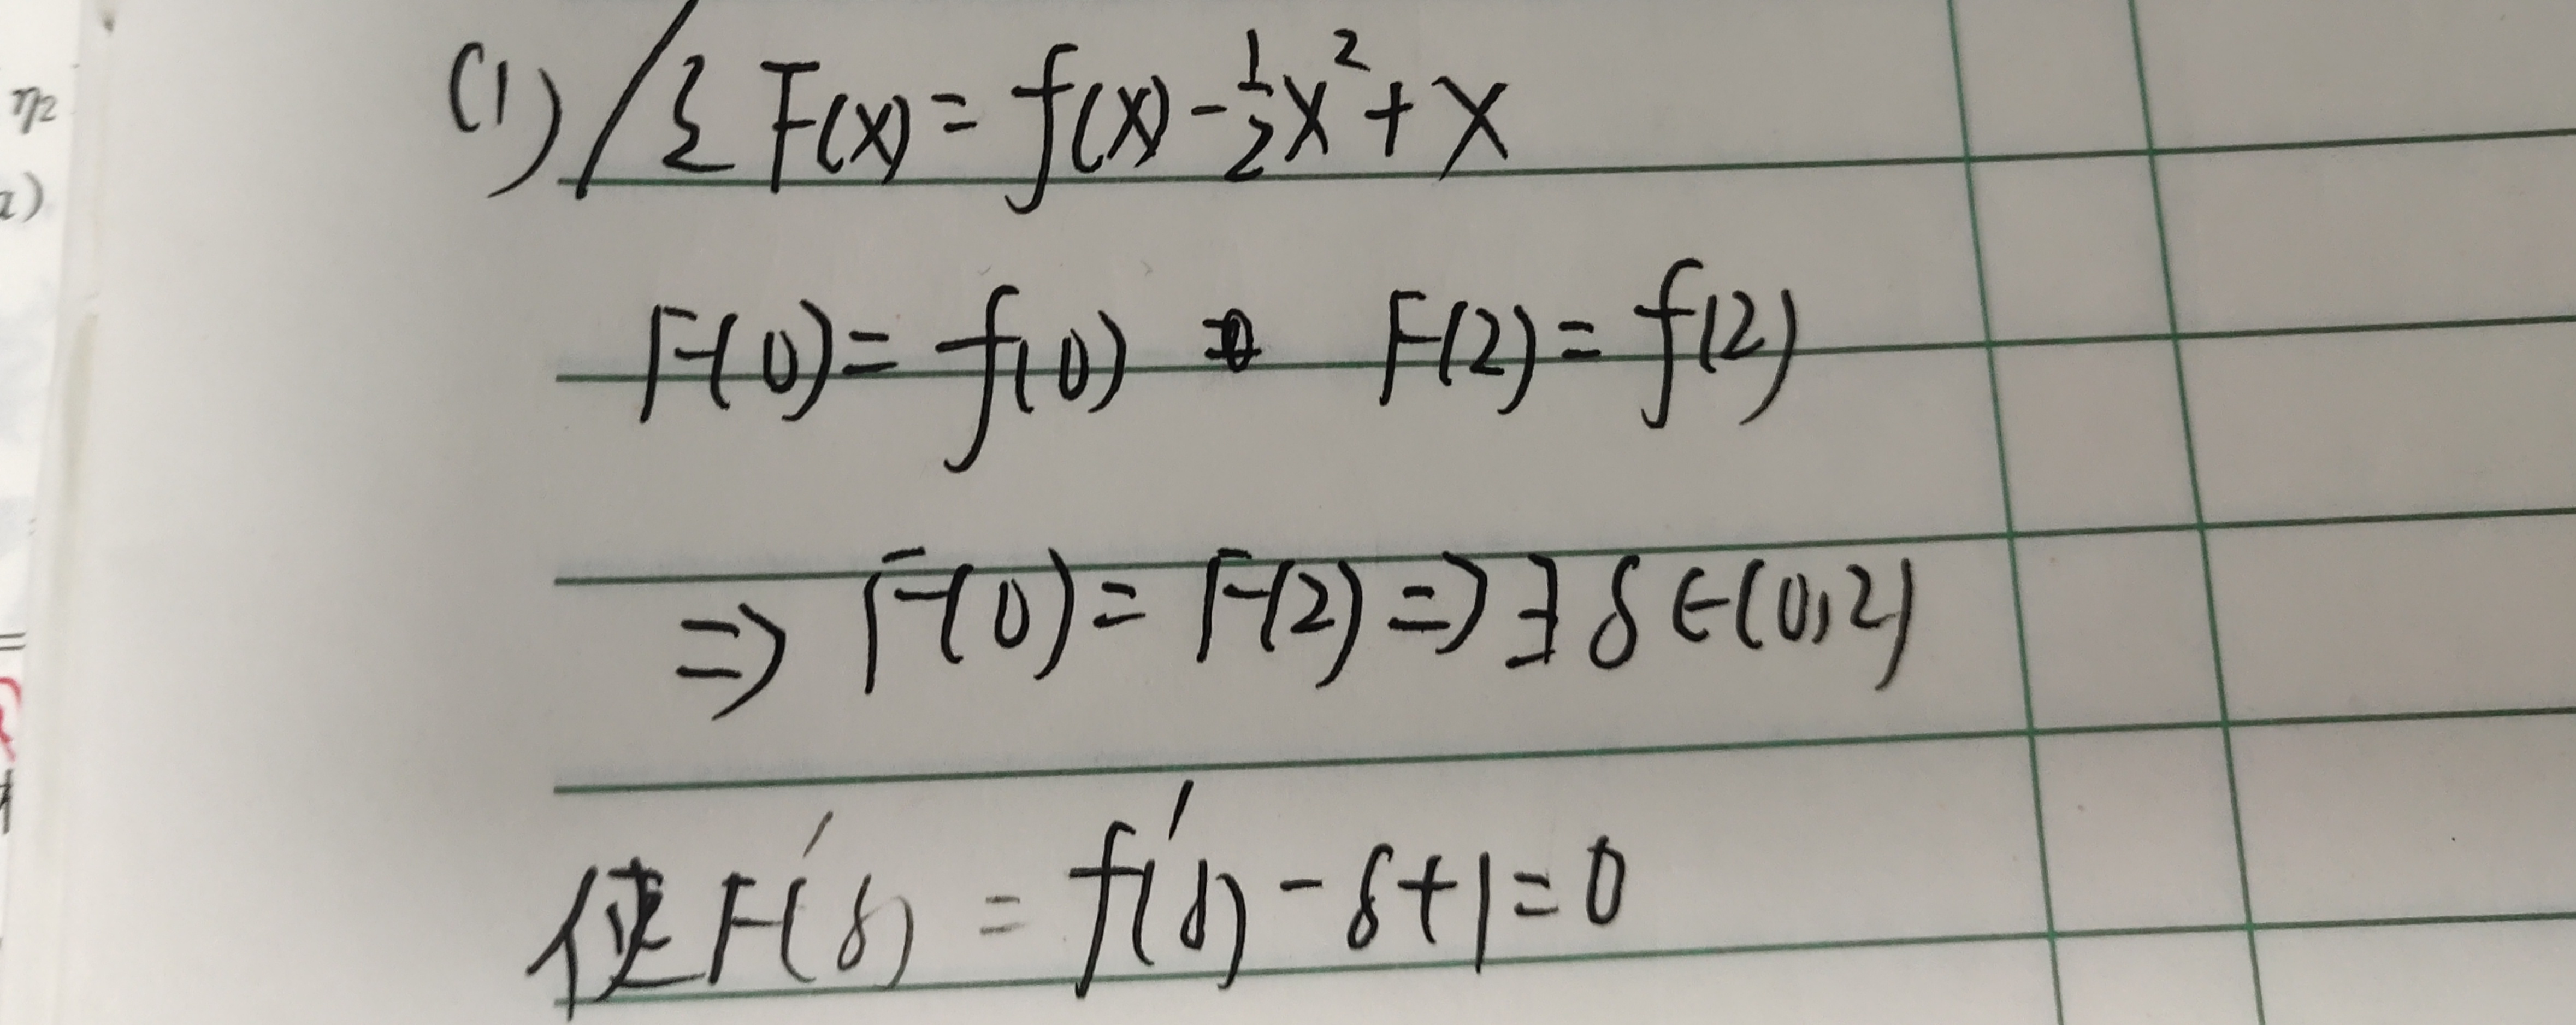 (1) / ξ F(x) = f(x) - ½x² + x
F(0) = f(0) F(2) = f(2)
⇒ F(0) = F(2) ⇒ ∃ δ ∈ (0,2)
使 F'(δ) = f'(δ) - δ + 1 = 0
η₂